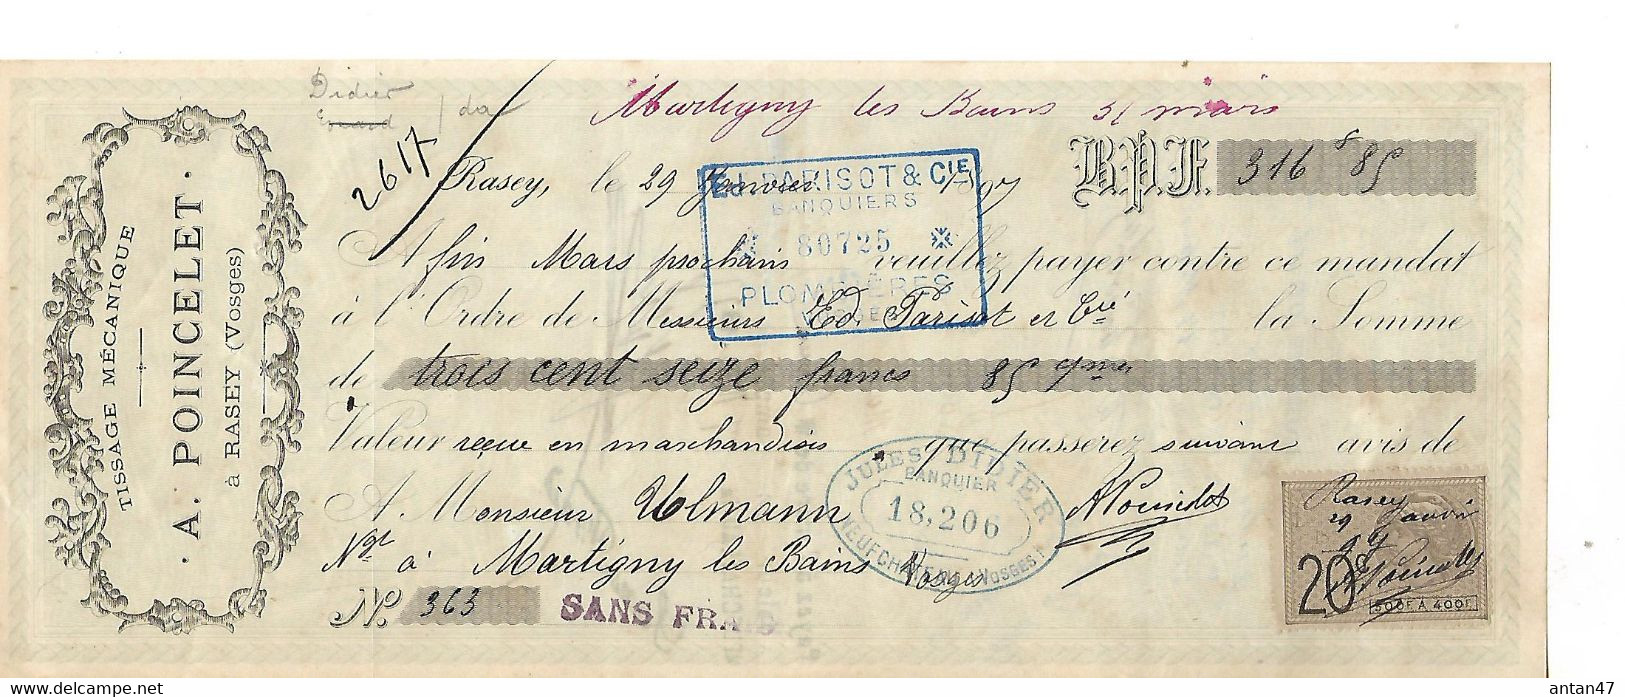 TISSAGE MÉCANIQUE
A. POINCELET
à RASEY (Vosges)
Didier
2617
Martigny les Bains 31 mars
Rasey, le 29 Janvier 1907
B.P.F. 316 f 85
Ed. PARISOT & CIE
BANQUIERS
80725
PLOMBIÈRES
A fin Mars prochain veuillez payer contre ce mandat
à l'Ordre de Messieurs Ed. Parisot et Cie la Somme
de trois cent seize francs 85 cmes
Valeur reçue en marchandises que passerez suivant avis de
JULES DIDIER
BANQUIER
18,206
NEUFCHATEAU (VOSGES)
A Monsieur Ulmann
APoincelet
Ngt à Martigny les Bains Vosges
No. 363
SANS FRAIS
Rasey
29 janvier
07
APoincelet
20c
300F A 400F
antan47